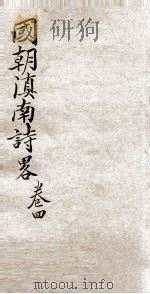 國朝滇南詩畧
卷四
mtoou.info